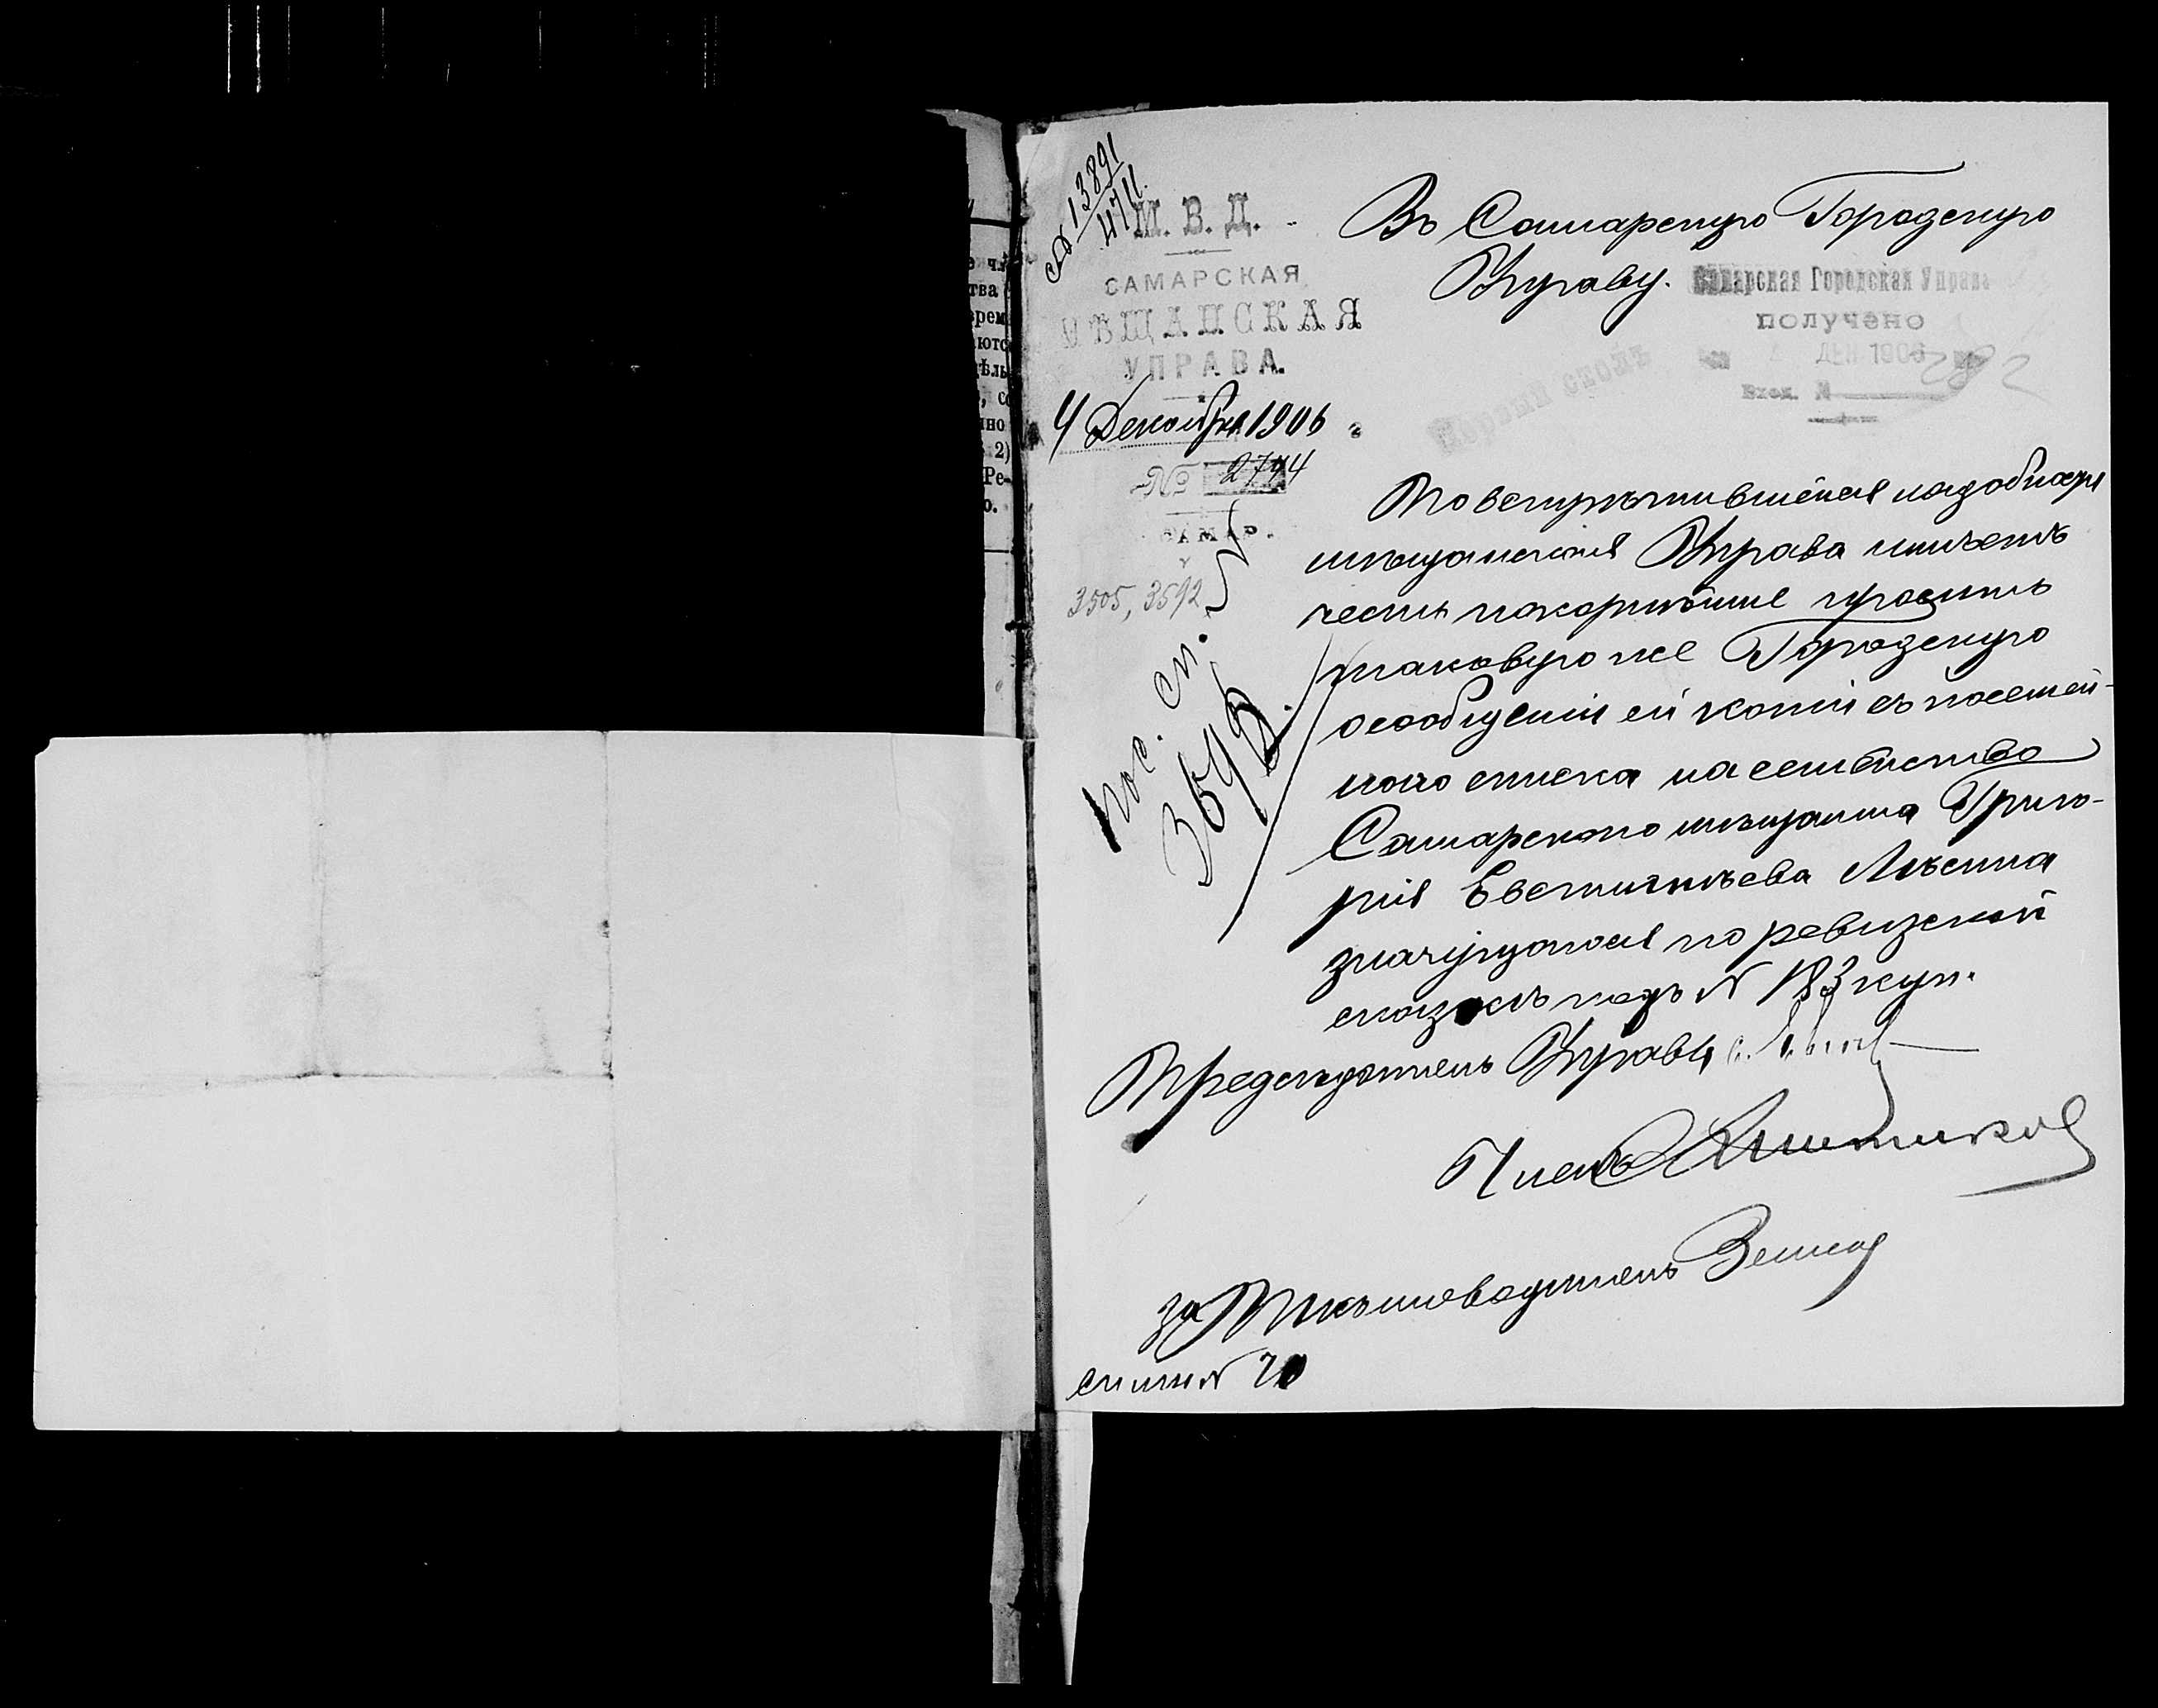 13891
4711
М. В. Д.
САМАРСКАЯ
МѢЩАНСКАЯ
УПРАВА.
4 Декабря 1906 г.
№ 2744
САМАР.
3505, 3592
пос. сп.
Въ Самарскую Городскую
Управу.
Самарская Городская Управа
получено
4 ДЕК 1906
Вход. №
Первый столъ
По встрѣтившейся надобности
мѣщанская Управа имѣетъ
честь покорнѣйше просить
таковую же Городскую
о сообщеніи ей копіи съ посемей-
наго списка на семейство
Самарскаго мѣщанина Григо-
рія Евстигнѣева Лѣсина
значущагося по ревизской
сказкѣ подъ № 183 куп.
Предсѣдатель Управы
Членъ
за Письмоводитель
тва
2)
Ре-
о.